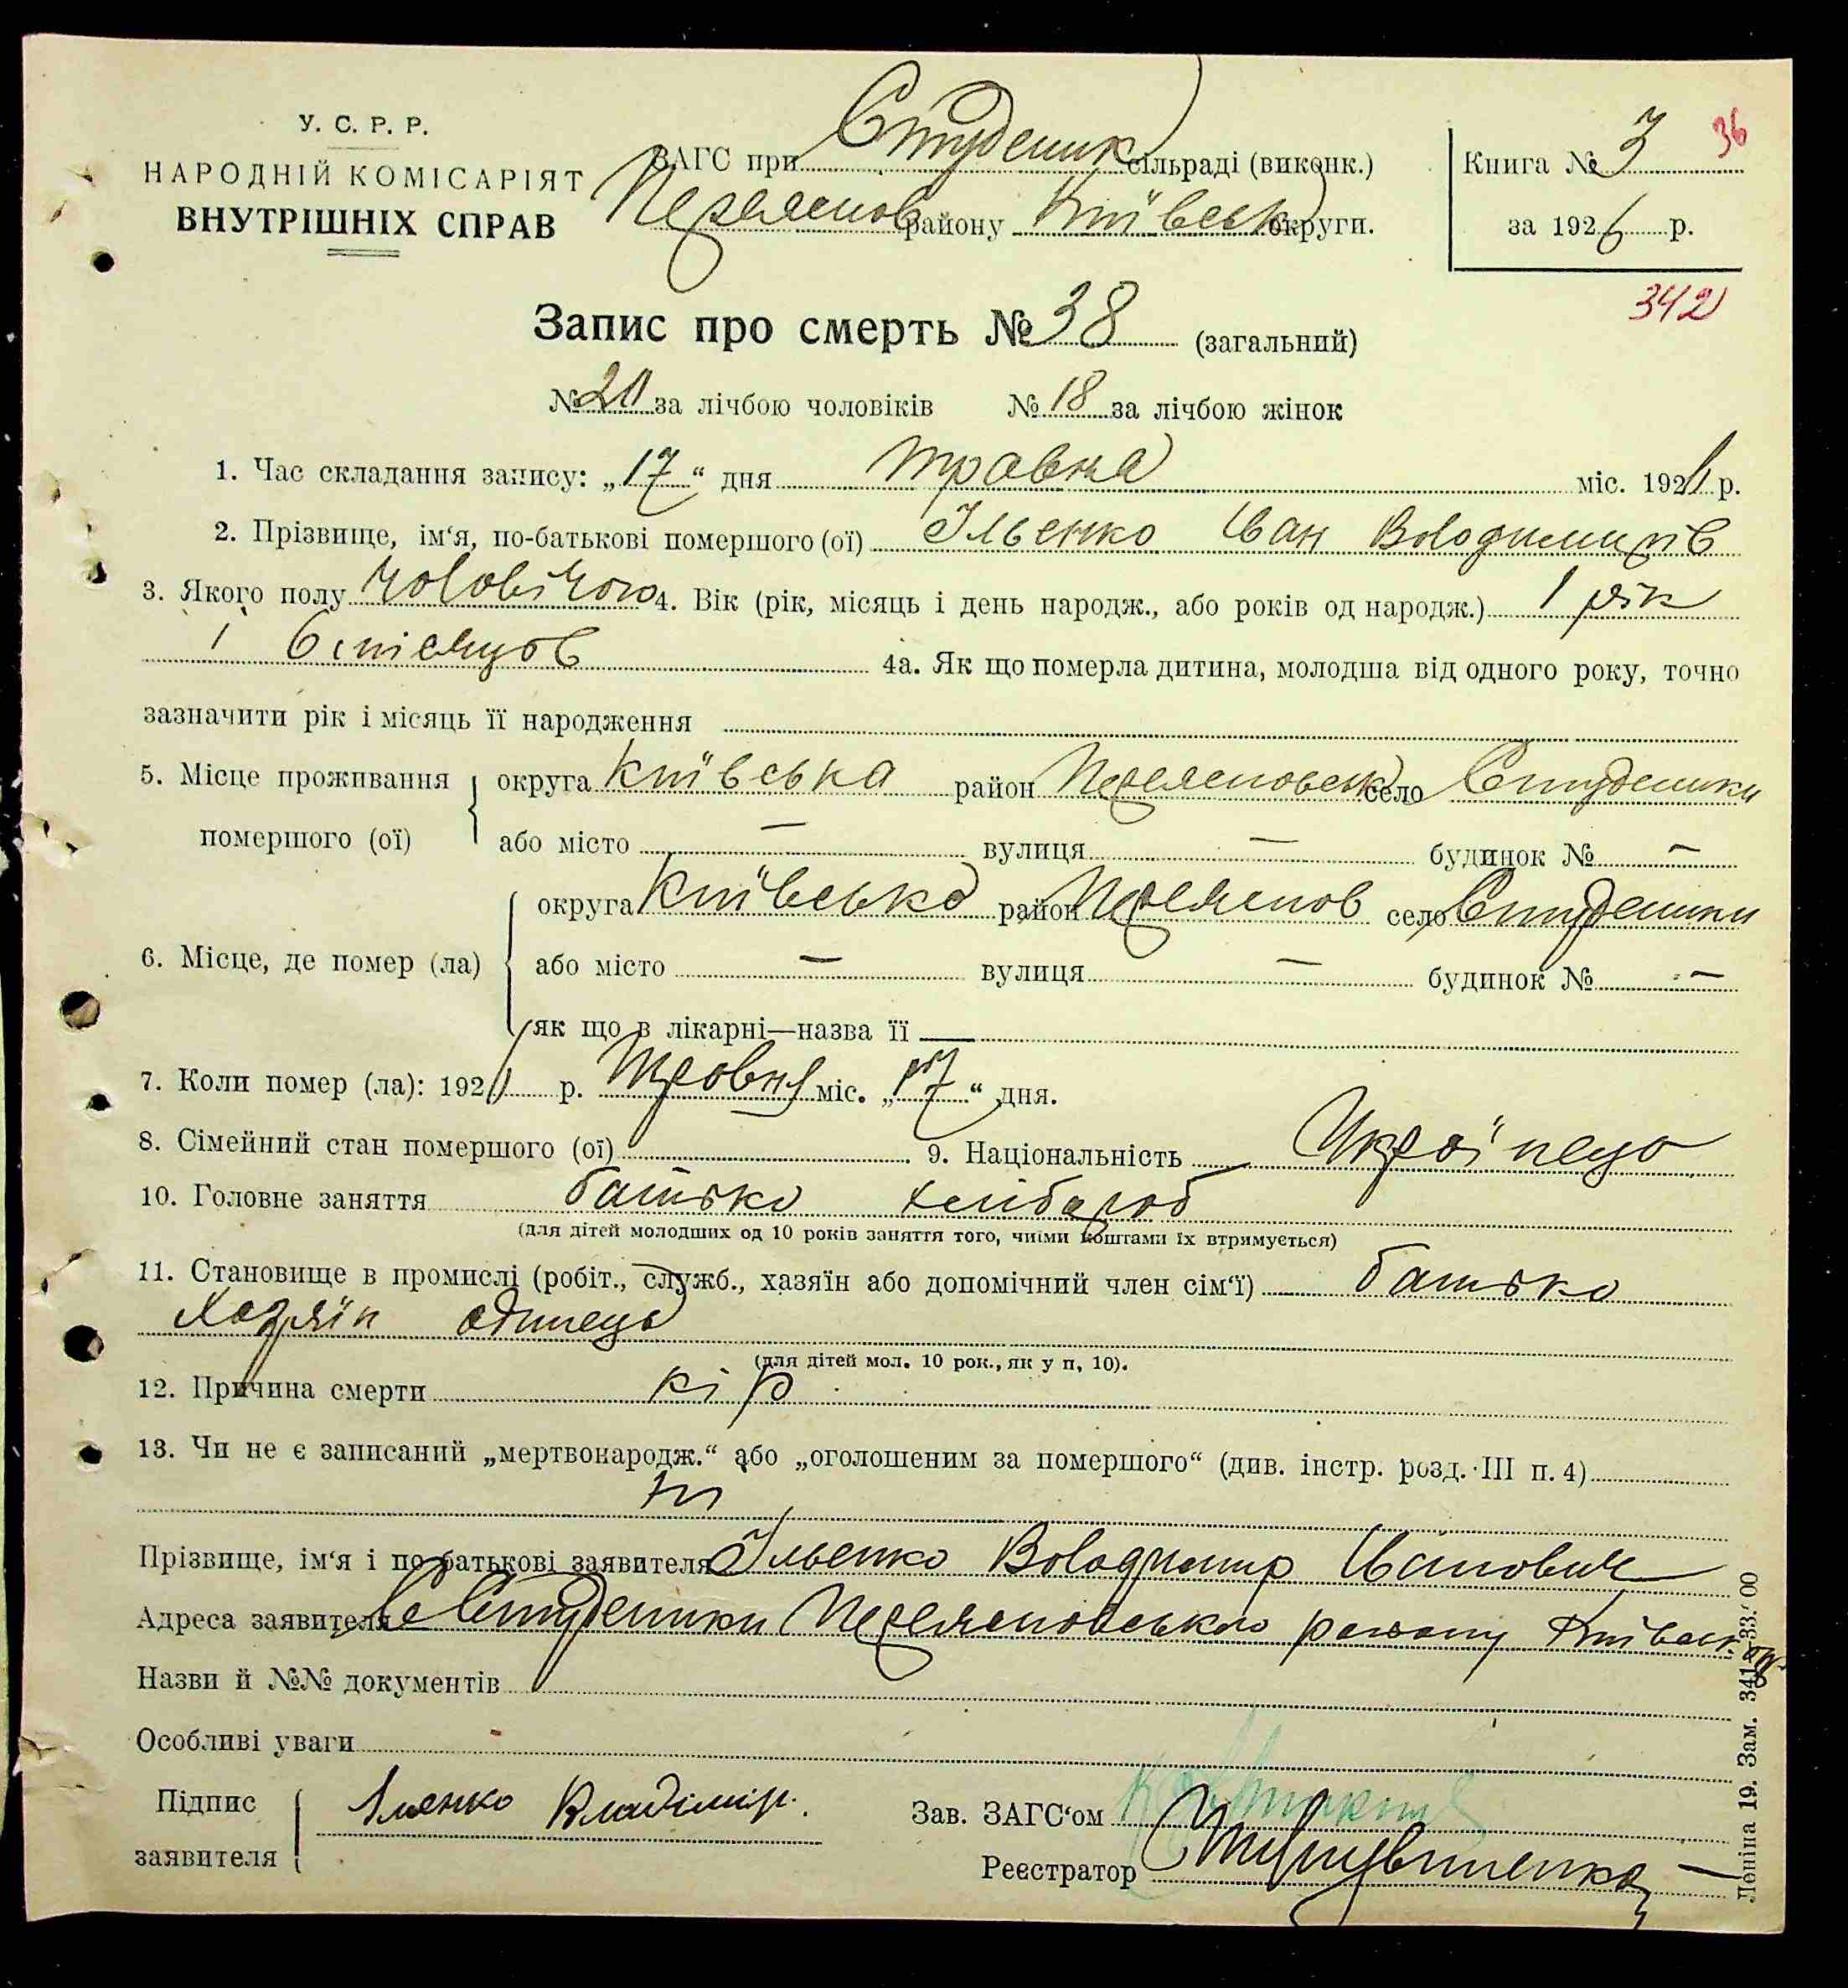 У. С. Р. Р.
НАРОДНІЙ КОМІСАРІЯТ
ВНУТРІШНІХ СПРАВ
ЗАГС при Студеник сільраді (виконк.)
Переяслов району Київськ округи.
Книга № 3 36
за 1926 р.
342
Запис про смерть № 38 (загальний)
№ 20 за лічбою чоловіків № 18 за лічбою жінок
1. Час складання запису: „17“ дня травня міс. 1926 р.
2. Прізвище, ім‘я, по-батькові помершого (ої) Ільенко Іван Володимирів
3. Якого полу чоловічого 4. Вік (рік, місяць і день народж., або років од народж.) 1 рік
і 6 місяцов 4а. Як що померла дитина, молодша від одного року, точно
зазначити рік і місяць її народження
5. Місце проживання помершого (ої) округа Київська район Переясловськ село Студеники
або місто — вулиця — будинок № —
6. Місце, де помер (ла) округа Київська район Переяслов село Студеники
або місто — вулиця — будинок № —
як що в лікарні—назва її —
7. Коли помер (ла): 1926 р. Травня міс. „17“ дня.
8. Сімейний стан помершого (ої) 9. Національність Українець
10. Головне заняття батько хлібороб
(для дітей молодших од 10 років заняття того, чиїми коштами їх втримується)
11. Становище в промислі (робіт., служб., хазяїн або допомічний член сім‘ї) батько
хазяїн одинець
(для дітей мол. 10 рок., як у п, 10).
12. Причина смерти кір
13. Чи не є записаний „мертвонародж.“ або „оголошеним за помершого“ (див. інстр. розд. III п. 4)
Ні
Прізвище, ім‘я і по батькові заявителя Ільенко Володимир Іванович
Адреса заявителя с Студеники Переясловського району Київськ. окр.
Назви й №№ документів
Особливі уваги
Підпис заявителя Ільенко Владімір.
Зав. ЗАГС‘ом
Реєстратор
Леніна 19. Зам. 341—33.